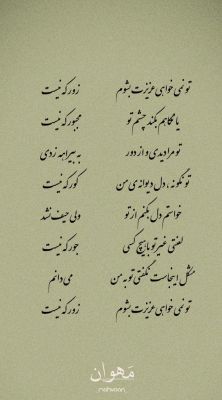 تو نمی خواهی عزیزت بشوم زور که نیست
یا نگاهم بکند چشم تو مجبور که نیست
تو مرا دیدی و از دور به بیراهه زدی
تو نگو نه ، دل دیوانه‌ی من کور که نیست
خواستم دل بکنم از تو ولی حیف نشد
لعنتی غیر تو با هیچ کسی جور که نیست
مشکل اینجاست نگفتی تو به من می دانم
تو نمی خواهی عزیزت بشوم زور که نیست
مَهوان
mahvaan